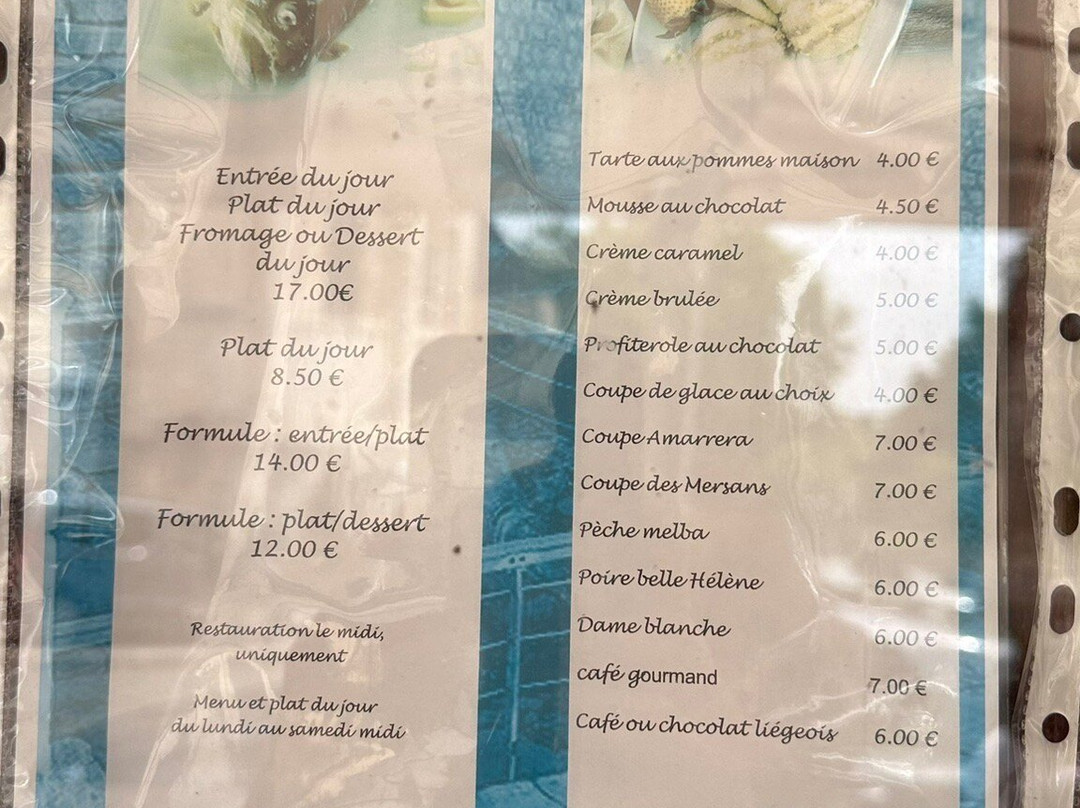 Entrée du jour
Plat du jour
Fromage ou Dessert
du jour
17.00€
Plat du jour
8.50 €
Formule : entrée/plat
14.00 €
Formule : plat/dessert
12.00 €
Restauration le midi,
uniquement
Menu et plat du jour
du lundi au samedi midi
Tarte aux pommes maison 4.00 €
Mousse au chocolat 4.50 €
Crème caramel 4.00 €
Crème brulée 5.00 €
Profiterole au chocolat 5.00 €
Coupe de glace au choix 4.00 €
Coupe Amarrera 7.00 €
Coupe des Mersans 7.00 €
Pèche melba 6.00 €
Poire belle Hélène 6.00 €
Dame blanche 6.00 €
café gourmand 7.00 €
Café ou chocolat liégeois 6.00 €